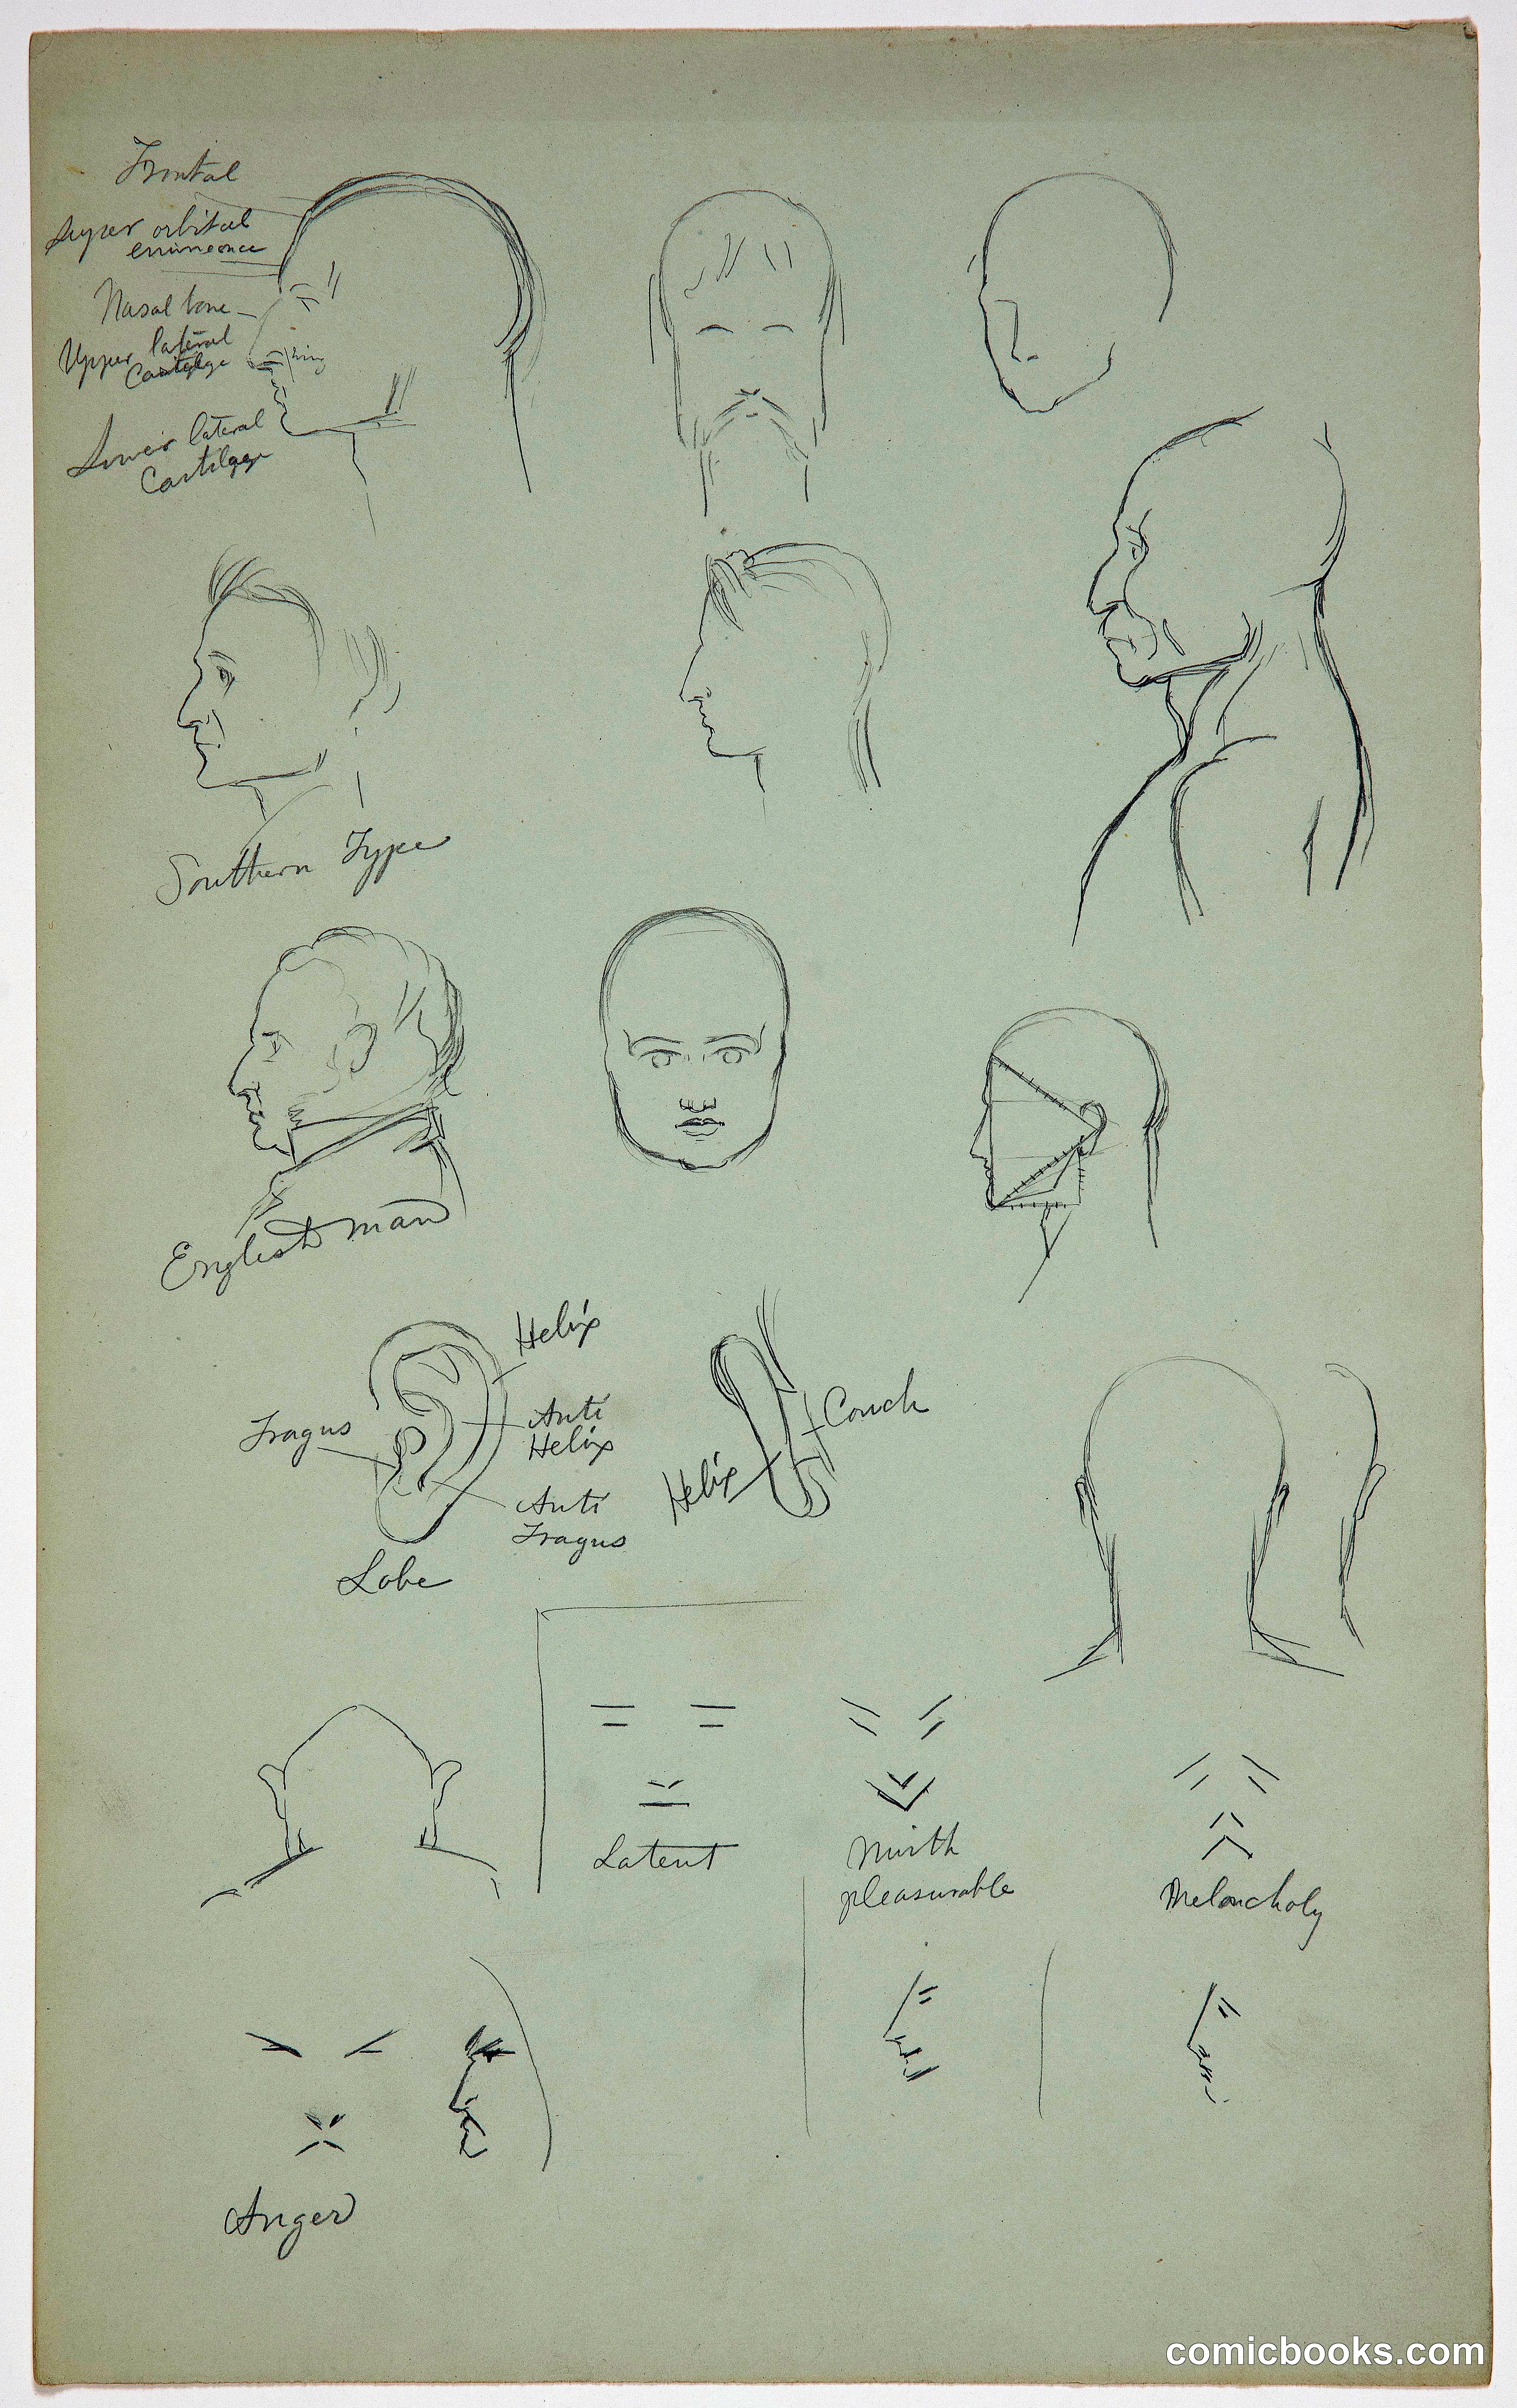 Frontal
super orbital
eminence
Nasal bone
Upper lateral
Cartilage
wing
Lower lateral
Cartilage
Southern Type
Englishman
Helix
Tragus
Anti
Helix
Anti
Tragus
Lobe
Conch
Helix
Latent
Mirth
pleasurable
Melancholy
Anger
comicbooks.com